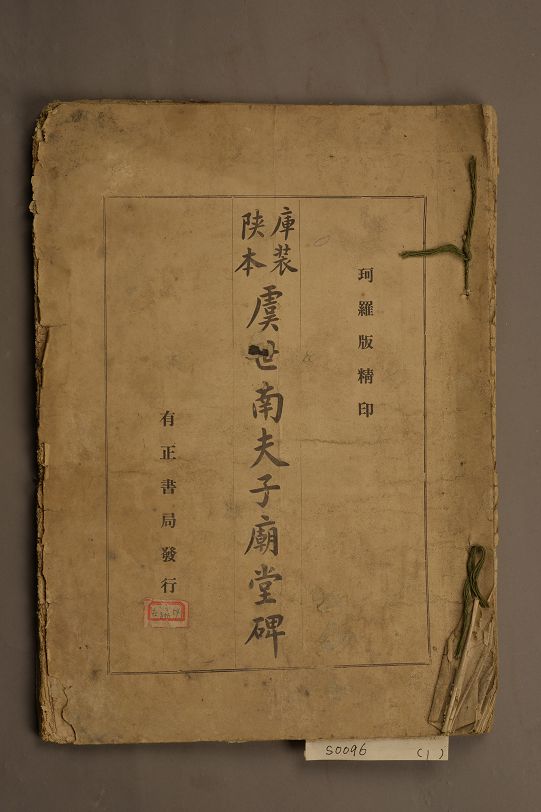 珂羅版精印
庫裝
陕本
虞世南夫子廟堂碑
有正書局發行
S0096 (1)